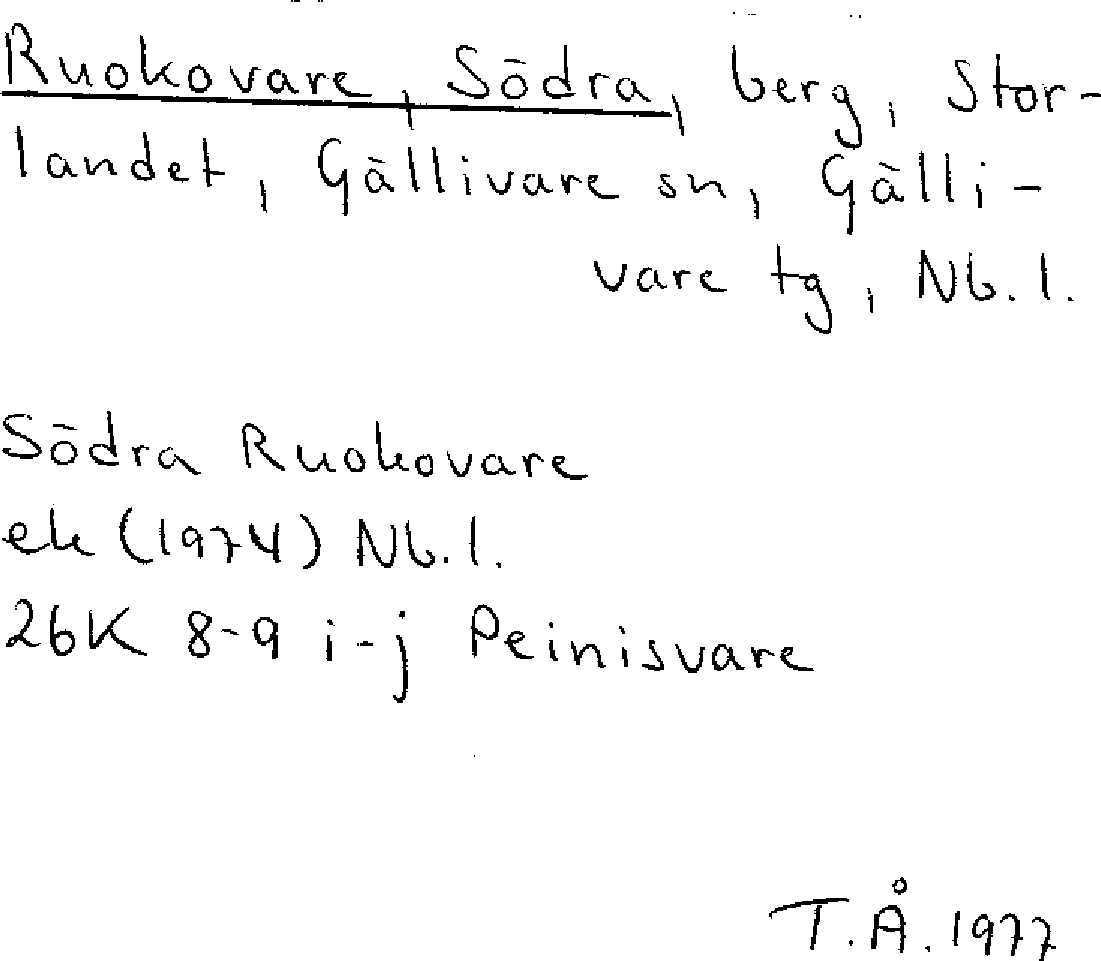 Ruokovare, Södra, berg, Stor-
landet, Gällivare sn, Gälli-
vare tg, Nb. l.
Södra Ruokovare
ek (1974) Nb. l.
26K 8-9 i-j Peinisvare
T.Å. 1977